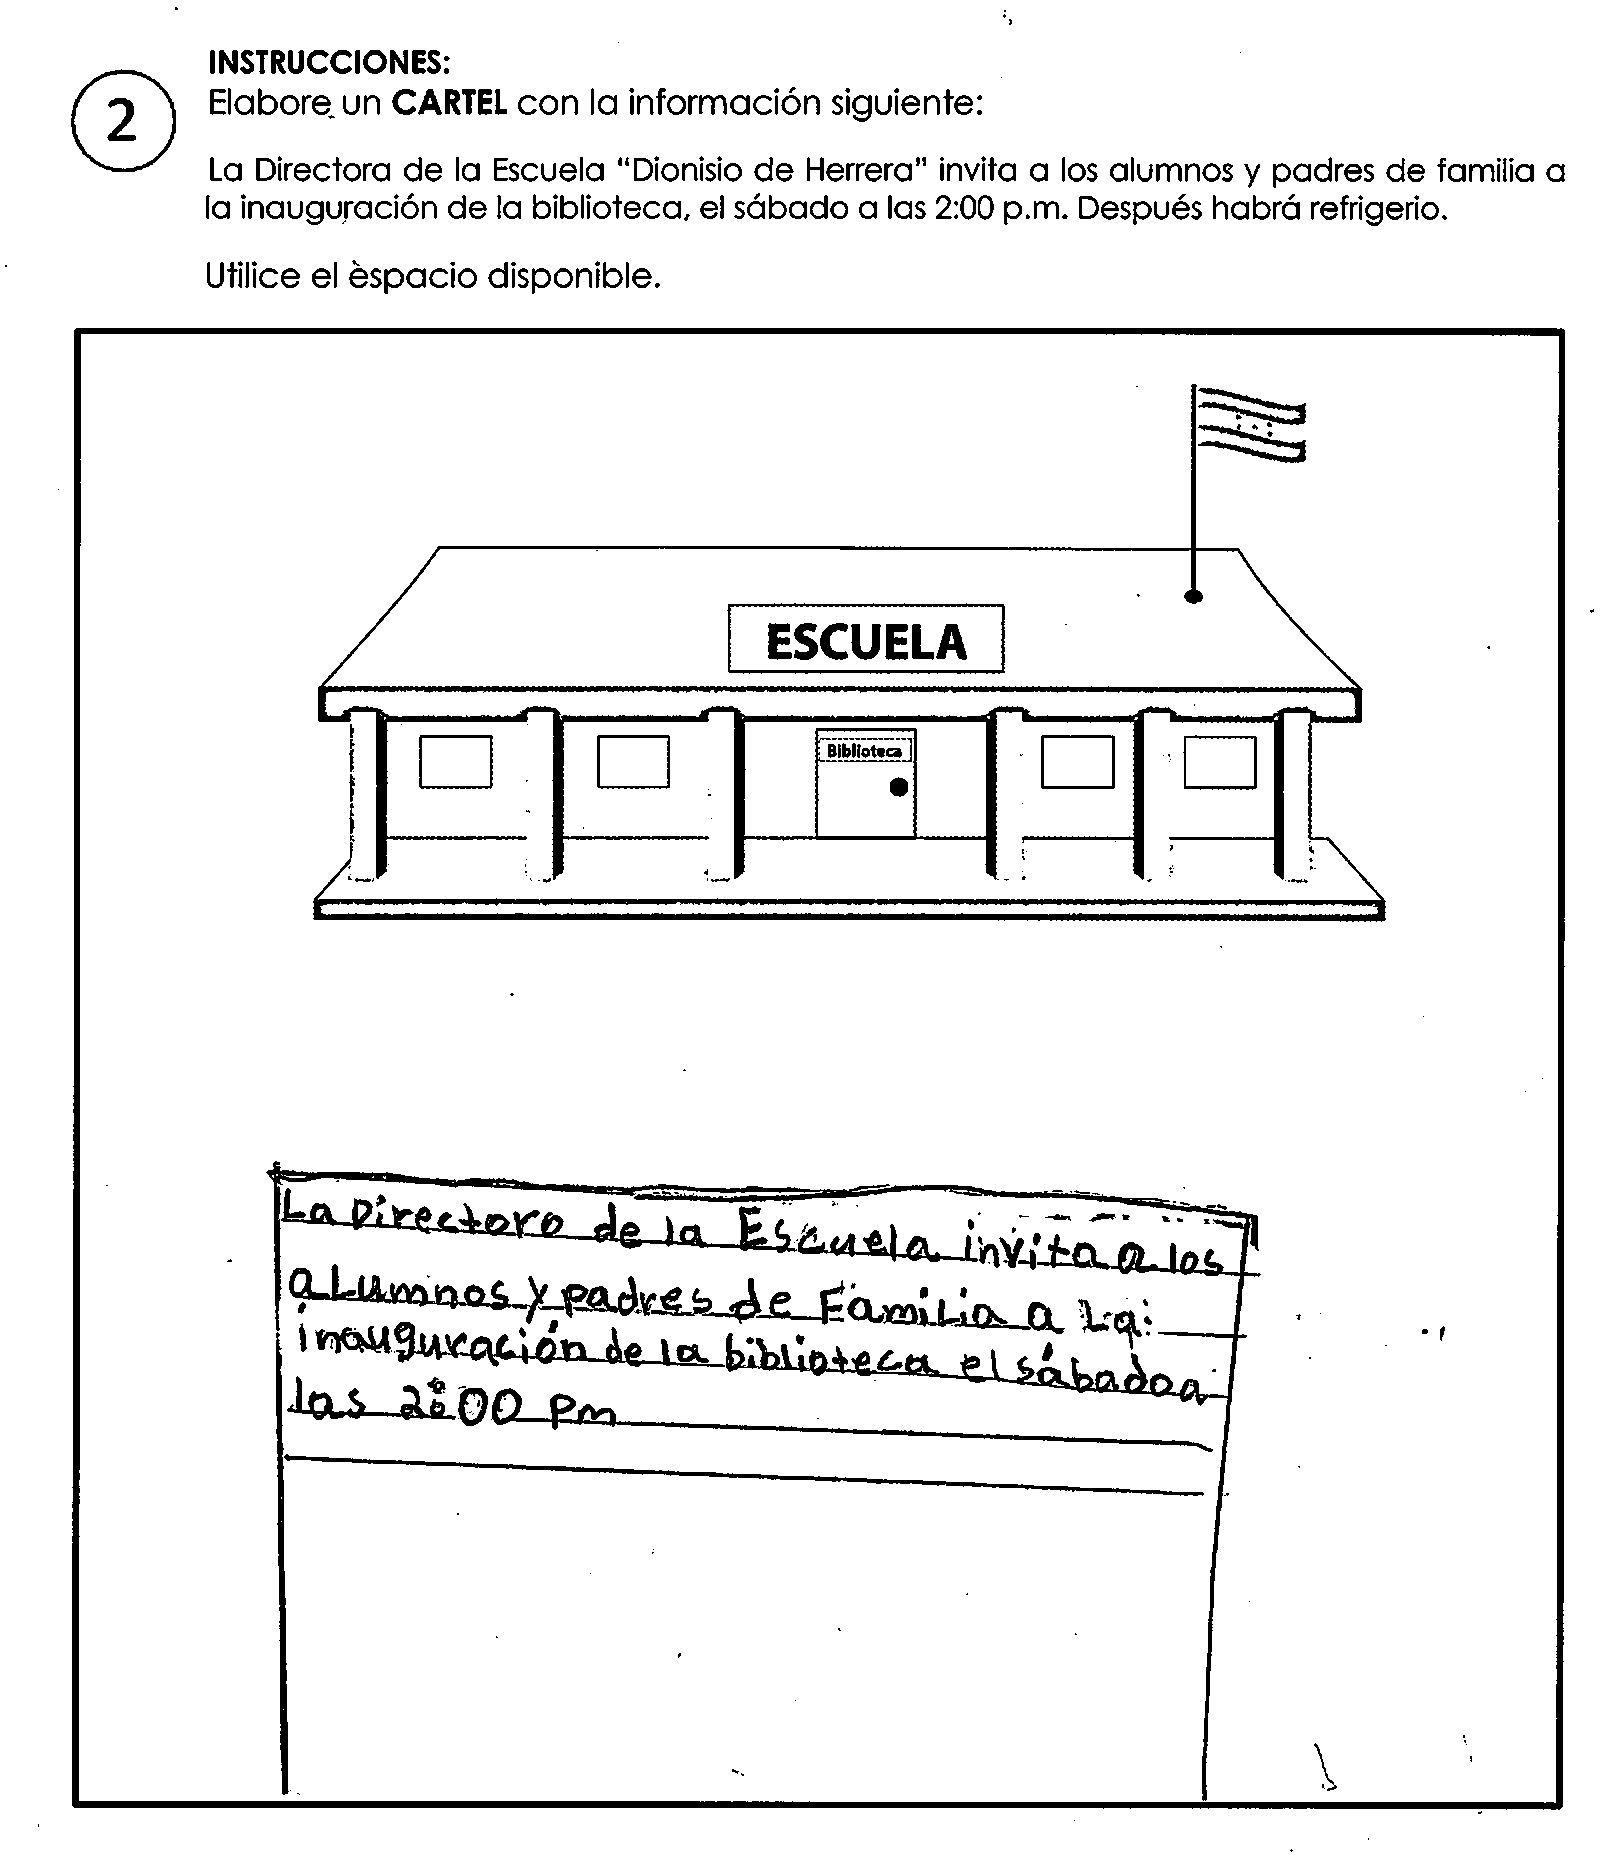 INSTRUCCIONES:
2
Elabore un CARTEL con la información siguiente:
La Directora de la Escuela "Dionisio de Herrera" invita a los alumnos y padres de familia a
la inauguración de la biblioteca, el sábado a las 2:00 p.m. Después habrá refrigerio.
Utilice el èspacio disponible.
ESCUELA
Biblioteca
La Directoro de la Escuela invita a los
alumnos y padres de Familia a La:
inauguración de la biblioteca el sábado a
las 2:00 pm